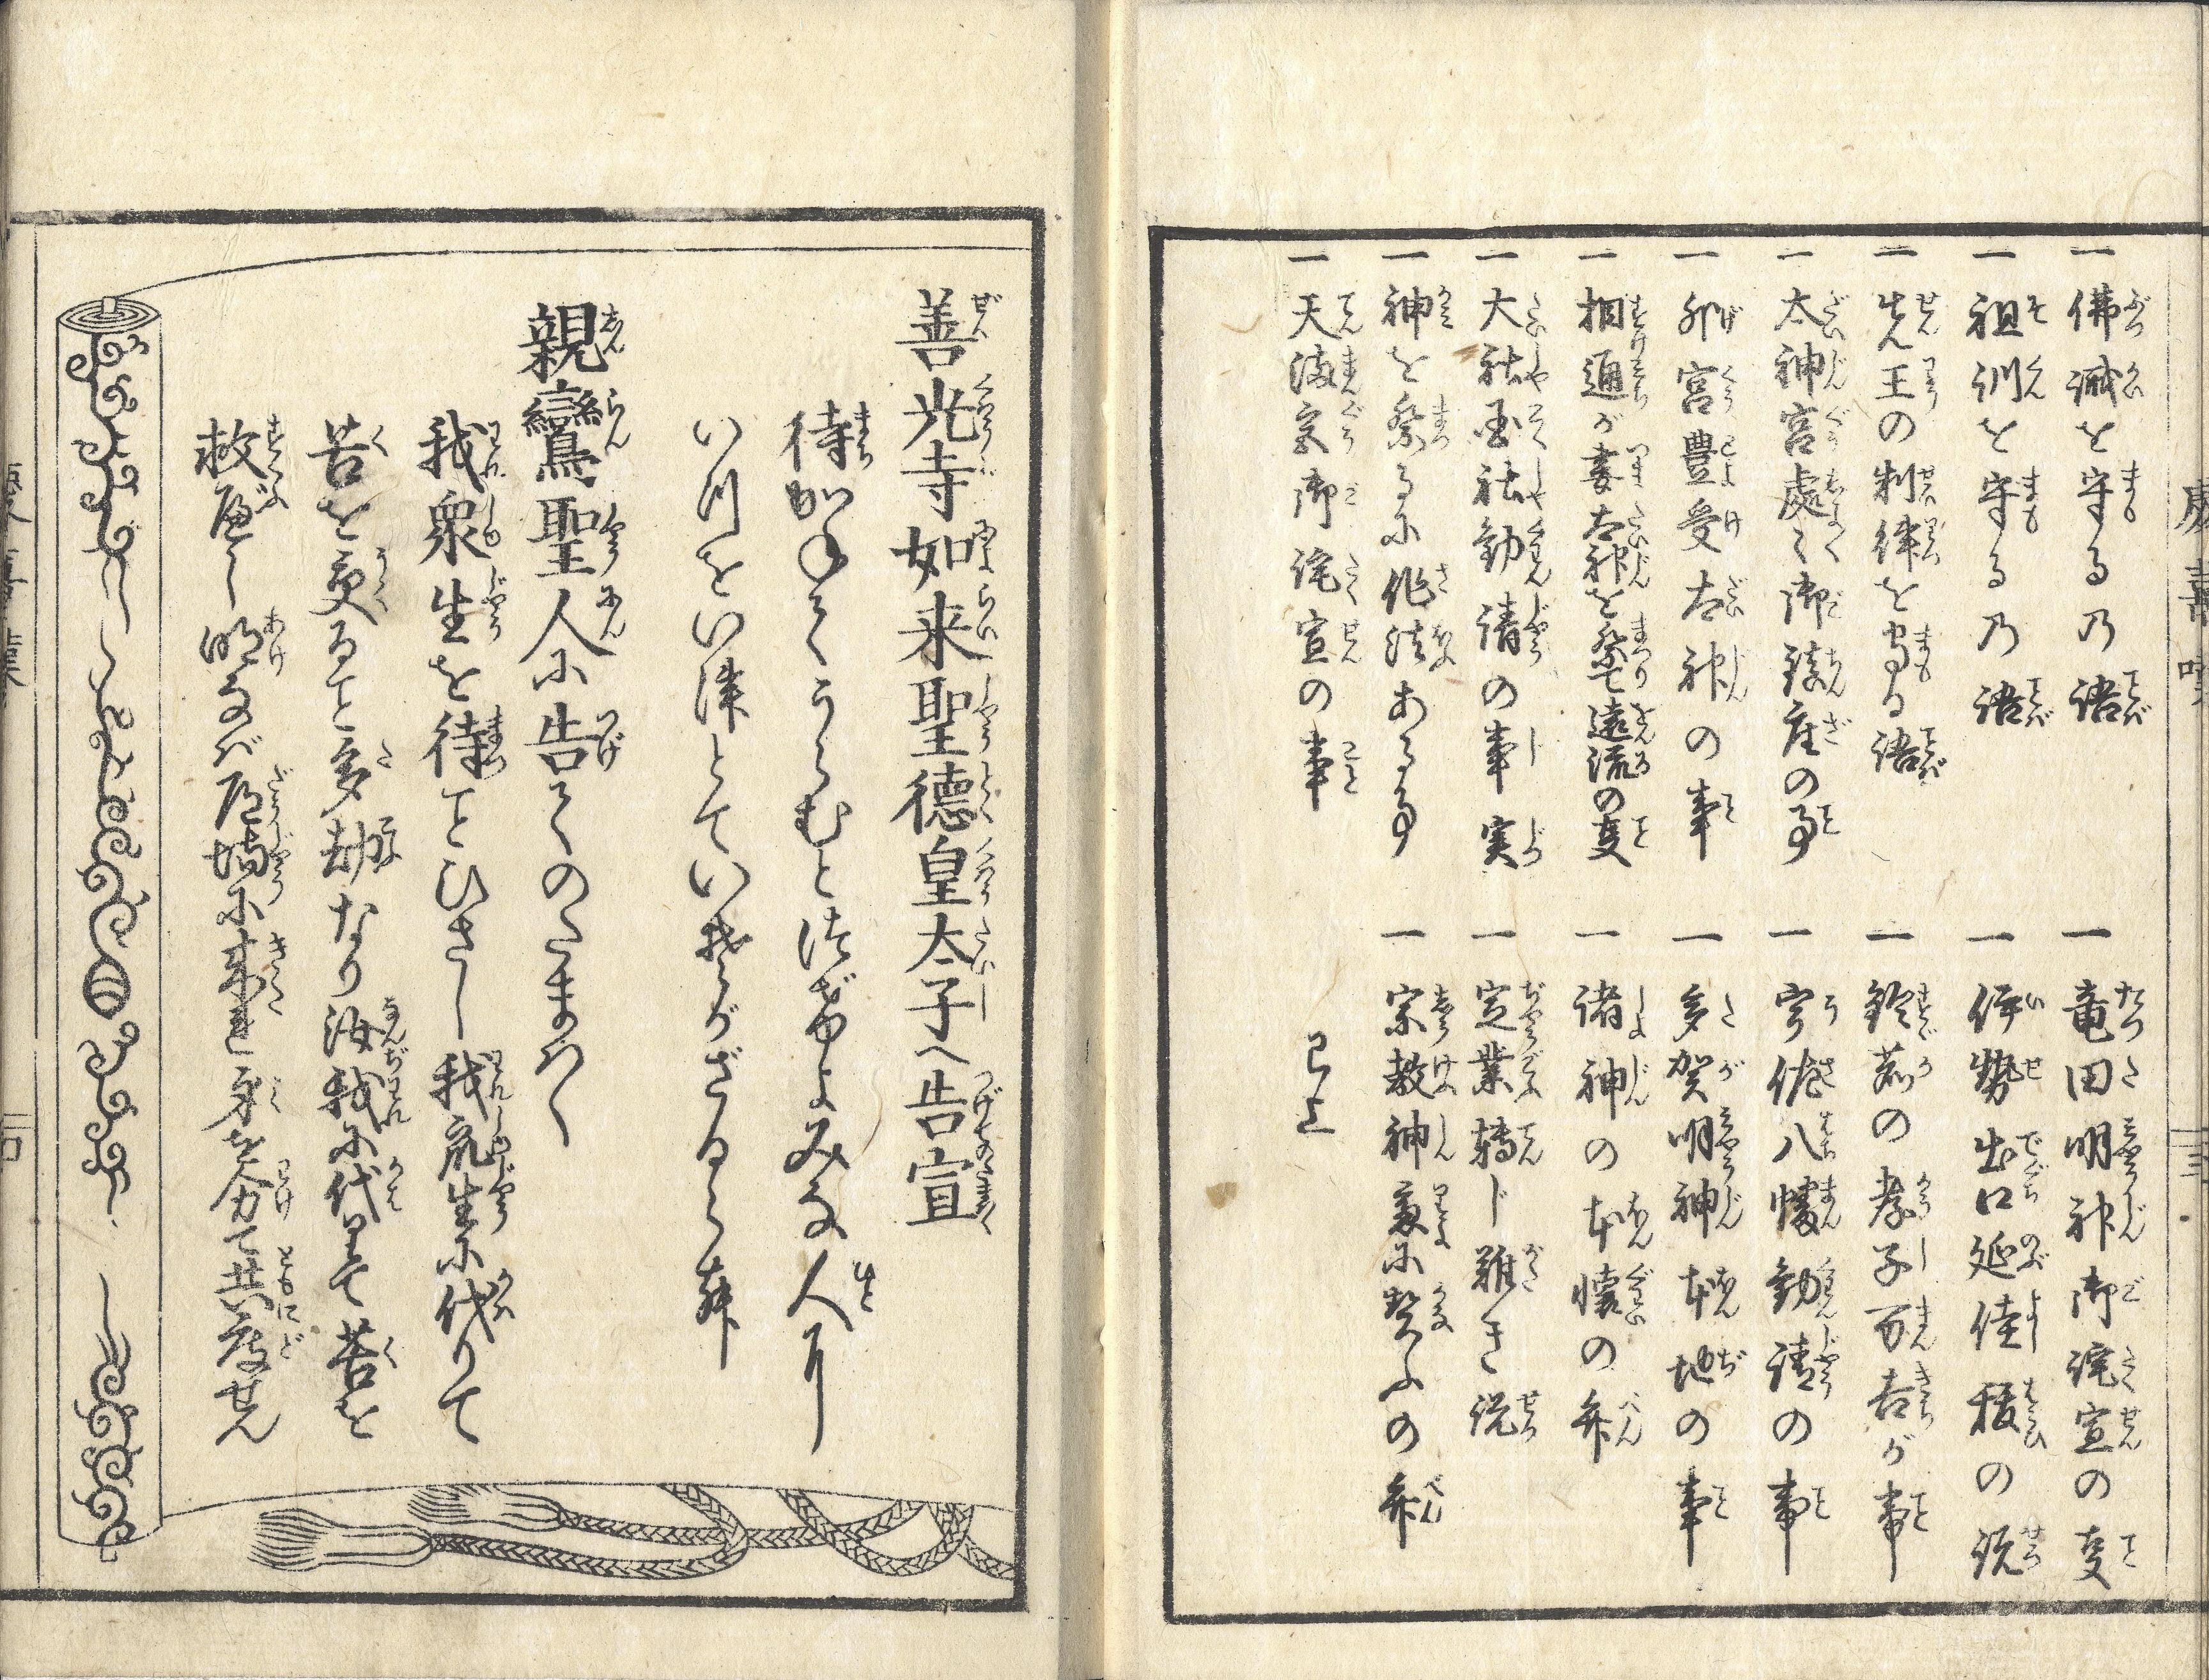 一 佛誡を守る乃語
一 祖訓を守る乃語
一 先王の制律を守る語
一 太神宮處々御鎮座の事
一 外宮豊受太神の事
一 相通が妻太神を祭て遠流の㕝
一 大社国社勧請の事実
一 神を祭るに作法ある事
一 天満宮御詫宣の事
一 竜田明神御詫宣の㕝
一 伊勢出口延佳秡の説
一 鈴鹿の孝子万吉が事
一 宇佐八幡勧請の事
一 多賀明神本地の事
一 諸神の本懐の弁
一 定業転じ難き説
一 宗教神慮に契ふの弁
已上
善光寺如来聖徳皇太子へ告宣
待かねてうらむと告よみな人に
いつをいつとていそがざるらん
親鸞聖人に告てのたまはく
我衆生を待ことひさし我衆生に代りて
苦を受ること多劫なり汝我に代りて苦を
救べし明なば道場に来れ身を分て共に度せん